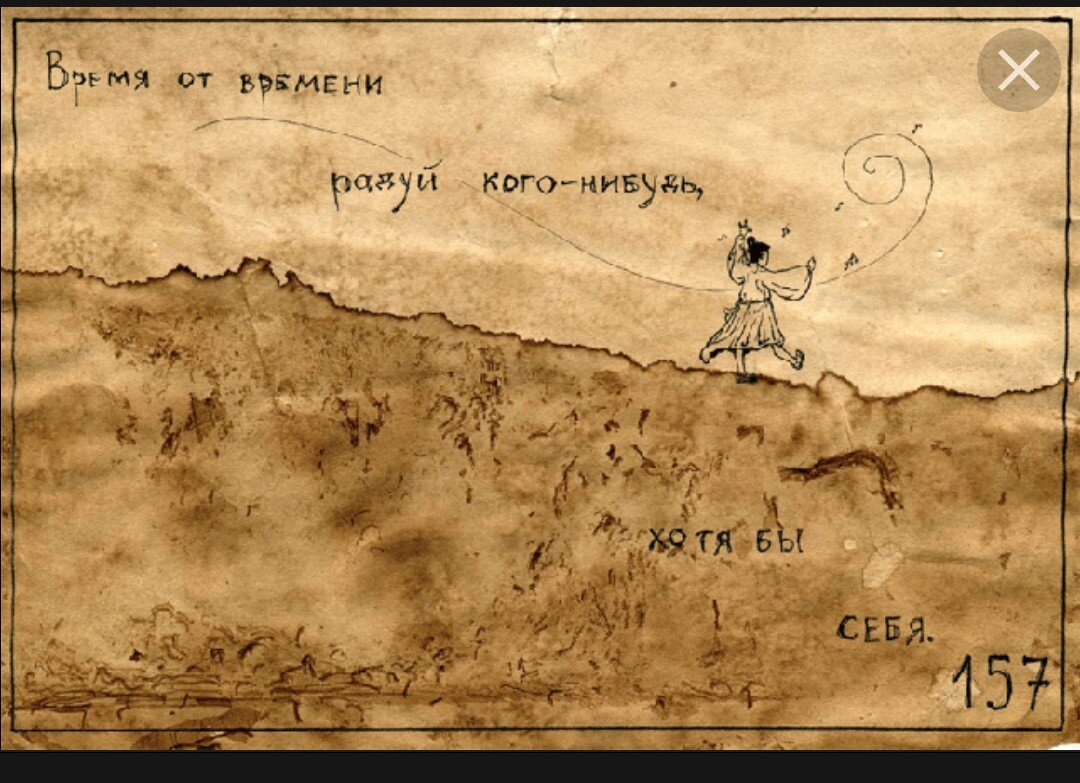 Время от времени
радуй кого-нибудь,
хотя бы
себя.
157